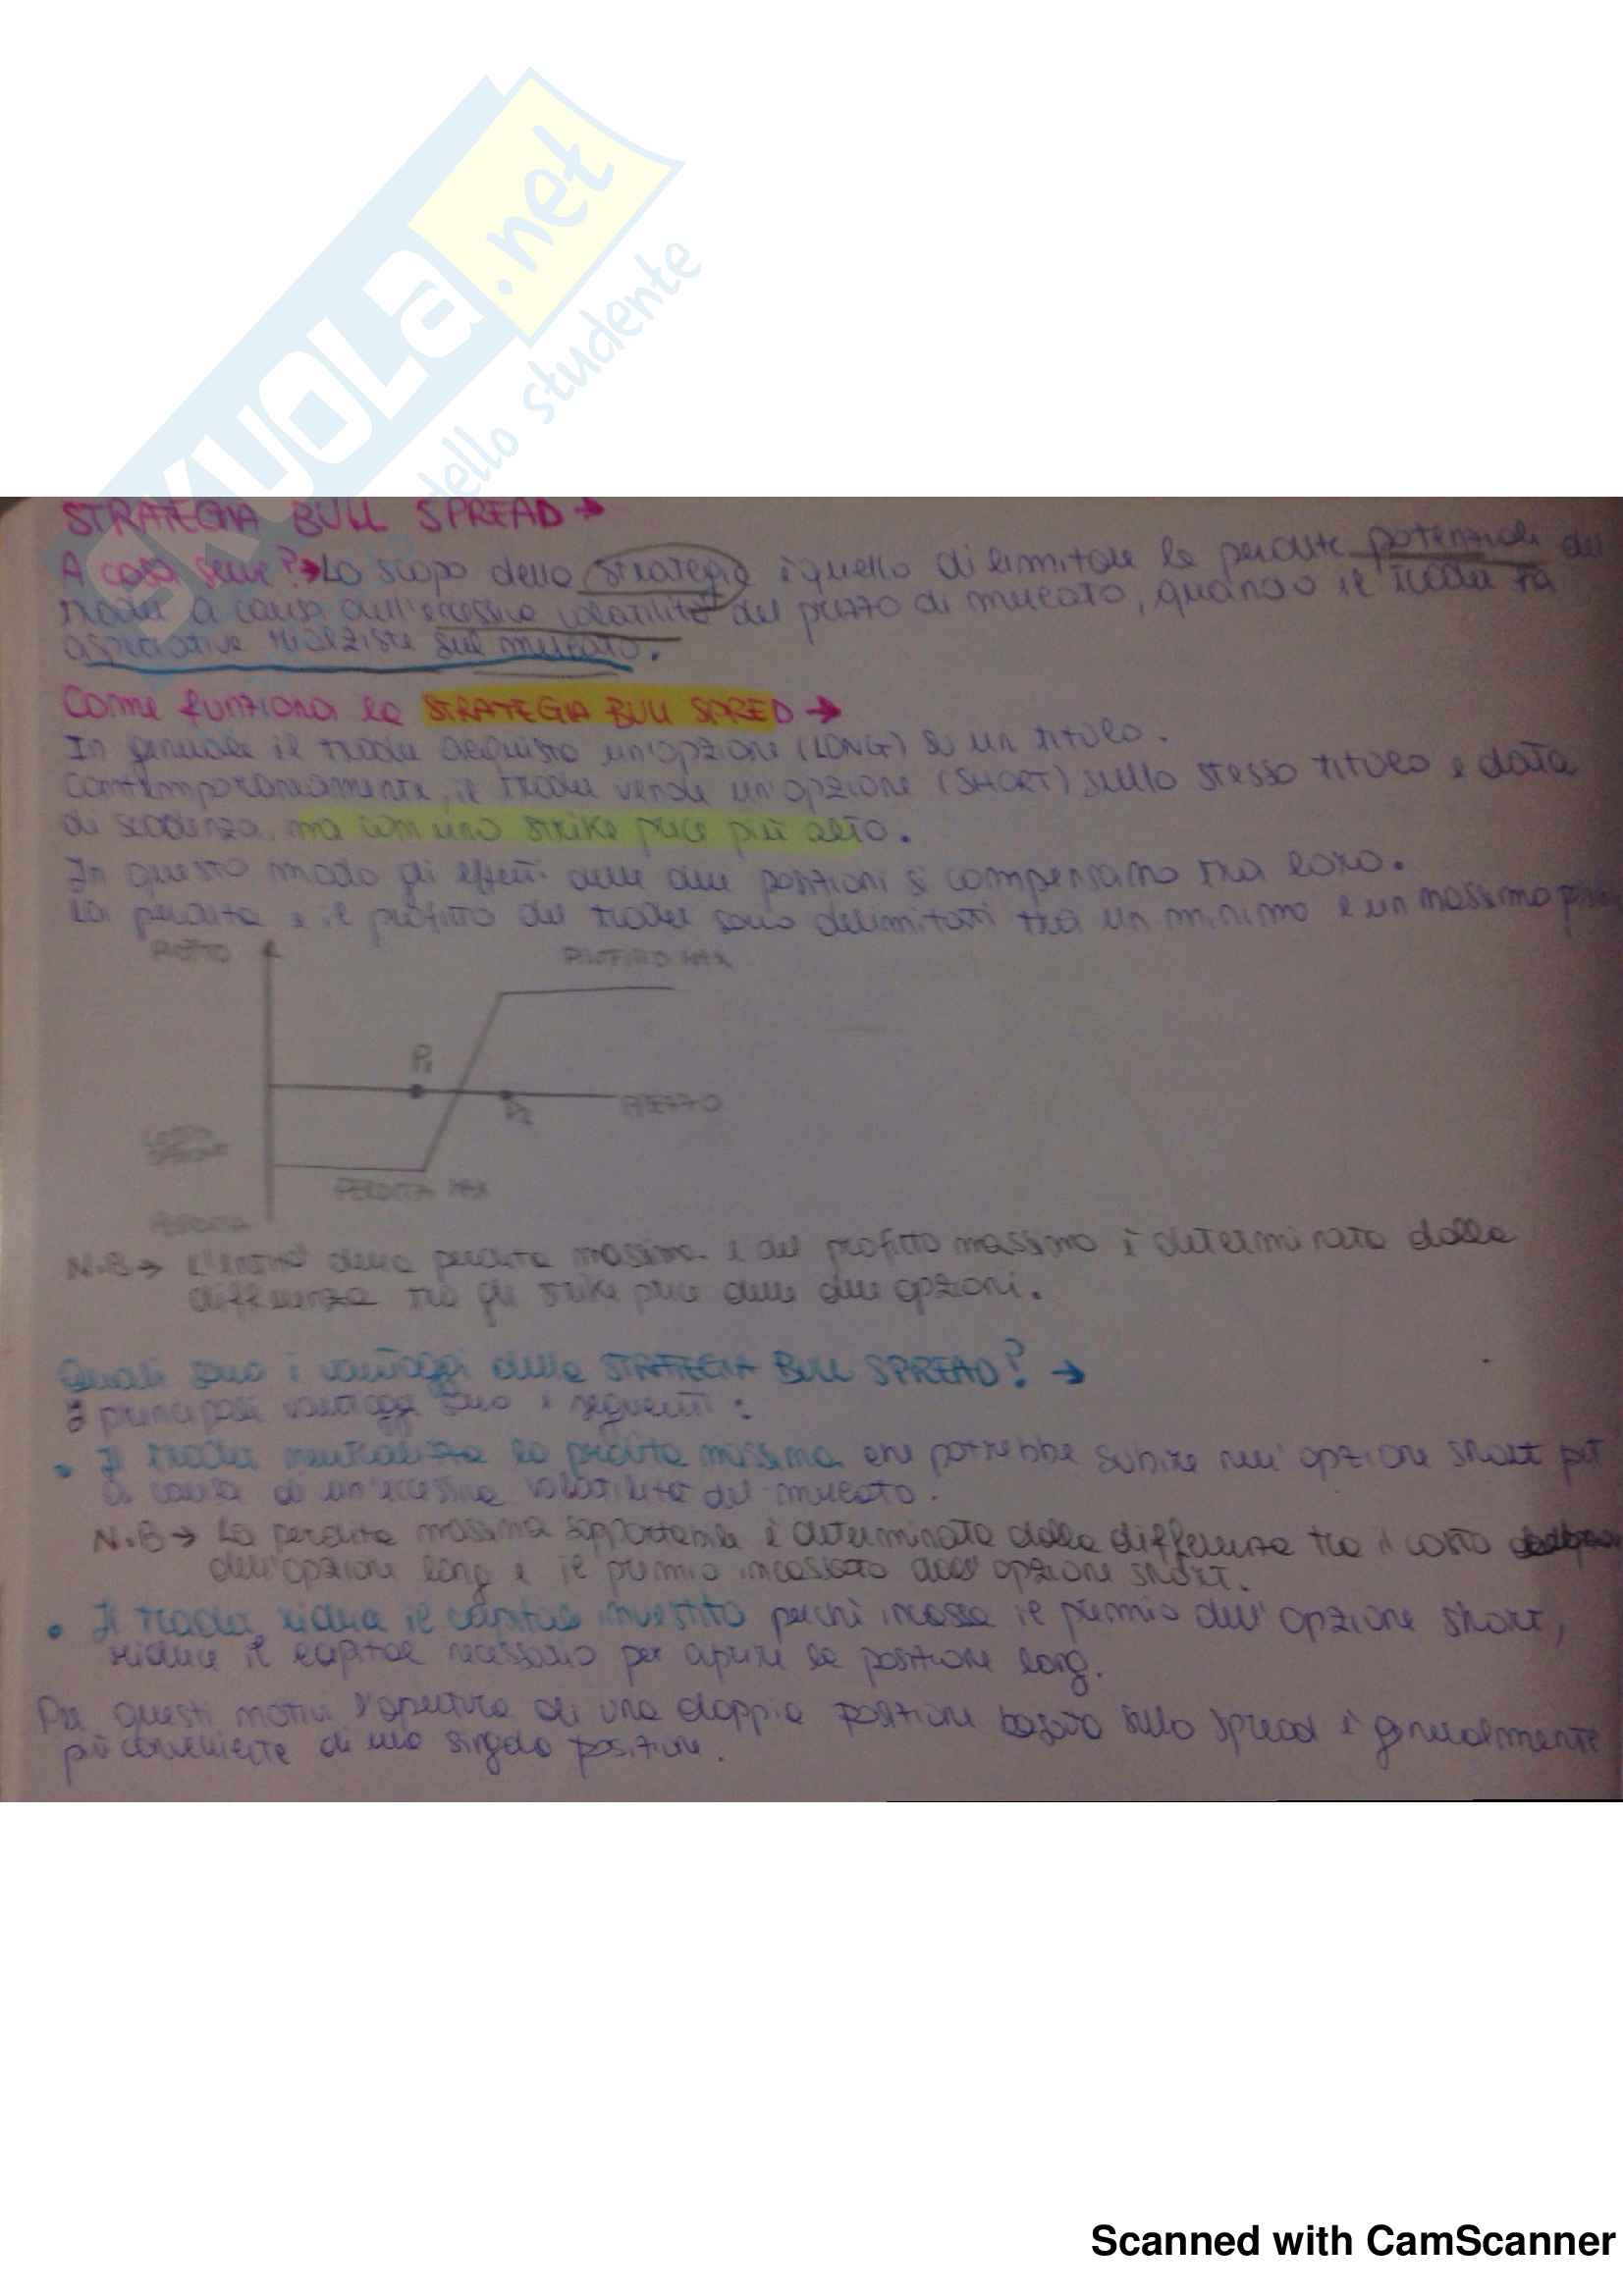 SKUOLA.net
dello studente
STRATEGIA BULL SPREAD →
A cosa serve? → Lo scopo della strategia è quello di limitare le perdite potenziali del
trader a causa dell'eccessiva volatilità del prezzo di mercato, quando il trader ha
aspettative rialziste sul mercato.
Come funziona la STRATEGIA BULL SPRED →
In generale il trader acquista un'opzione (LONG) su un titolo.
Contemporaneamente, il trader vende un'opzione (SHORT) sullo stesso titolo e data
di scadenza, ma con uno strike price più alto.
In questo modo gli effetti delle due posizioni si compensano tra loro.
La perdita e il profitto del trader sono delimitati tra un minimo e un massimo
PROFITTO MAX
P1
P2
PREZZO
PERDITA MAX
PERDITA
N.B → L'entità della perdita massima e del profitto massimo è determinata dalla
differenza tra gli strike price delle due opzioni.
Quali sono i vantaggi della STRATEGIA BULL SPREAD? →
I principali vantaggi sono i seguenti:
• Il trader neutralizza la perdita massima che potrebbe subire nell'opzione short per
a causa di un'eccessiva volatilità del mercato.
N.B → La perdita massima sopportabile è determinata dalla differenza tra il costo
dell'opzione long e il premio incassato dall'opzione short.
• Il trader riduce il capitale investito perché incassa il premio dell'opzione short,
riduce il capital necessario per aprire la posizione long.
Per questi motivi l'apertura di una doppia posizione basata sullo spread è generalmente
più conveniente di una singola posizione.
Scanned with CamScanner